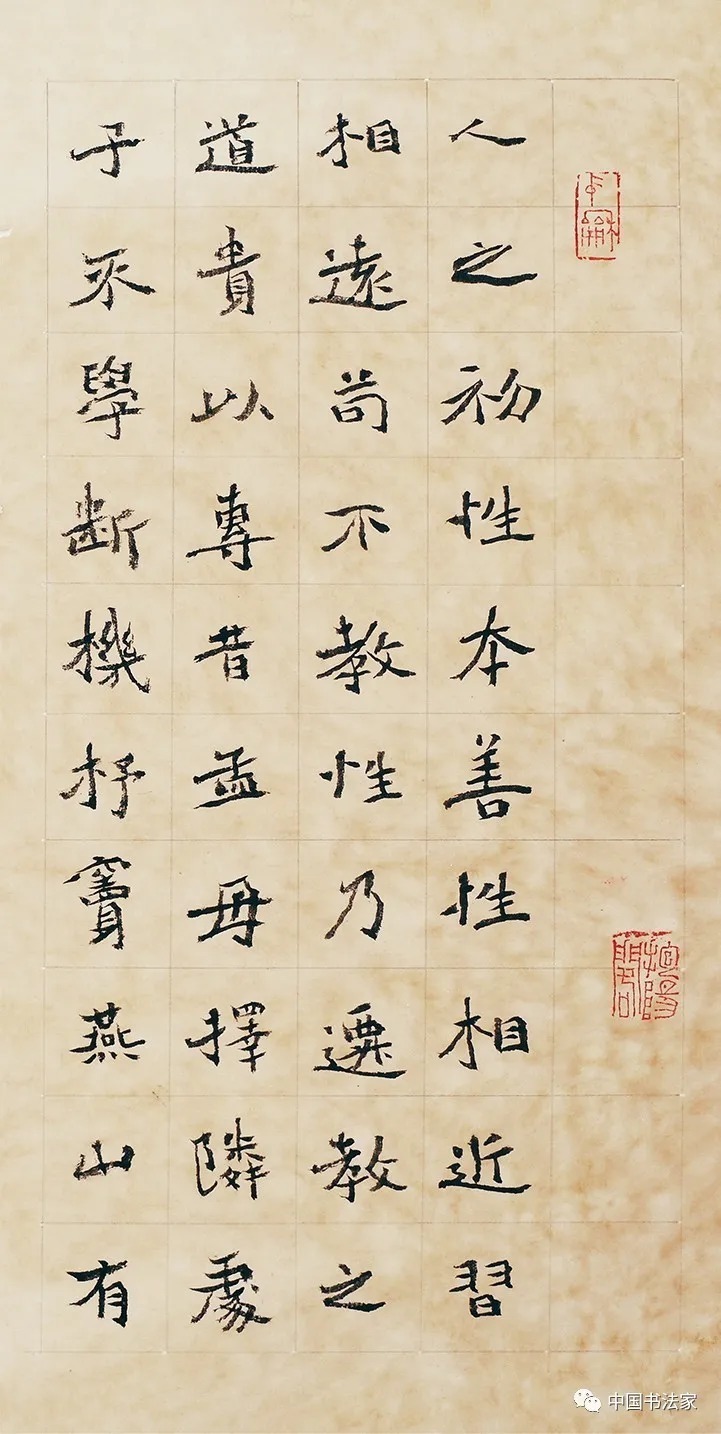 人之初性本善性相近習
相遠苟不教性乃遷教之
道貴以專昔孟母擇隣處
子不學断機杼竇燕山有
中国书法家